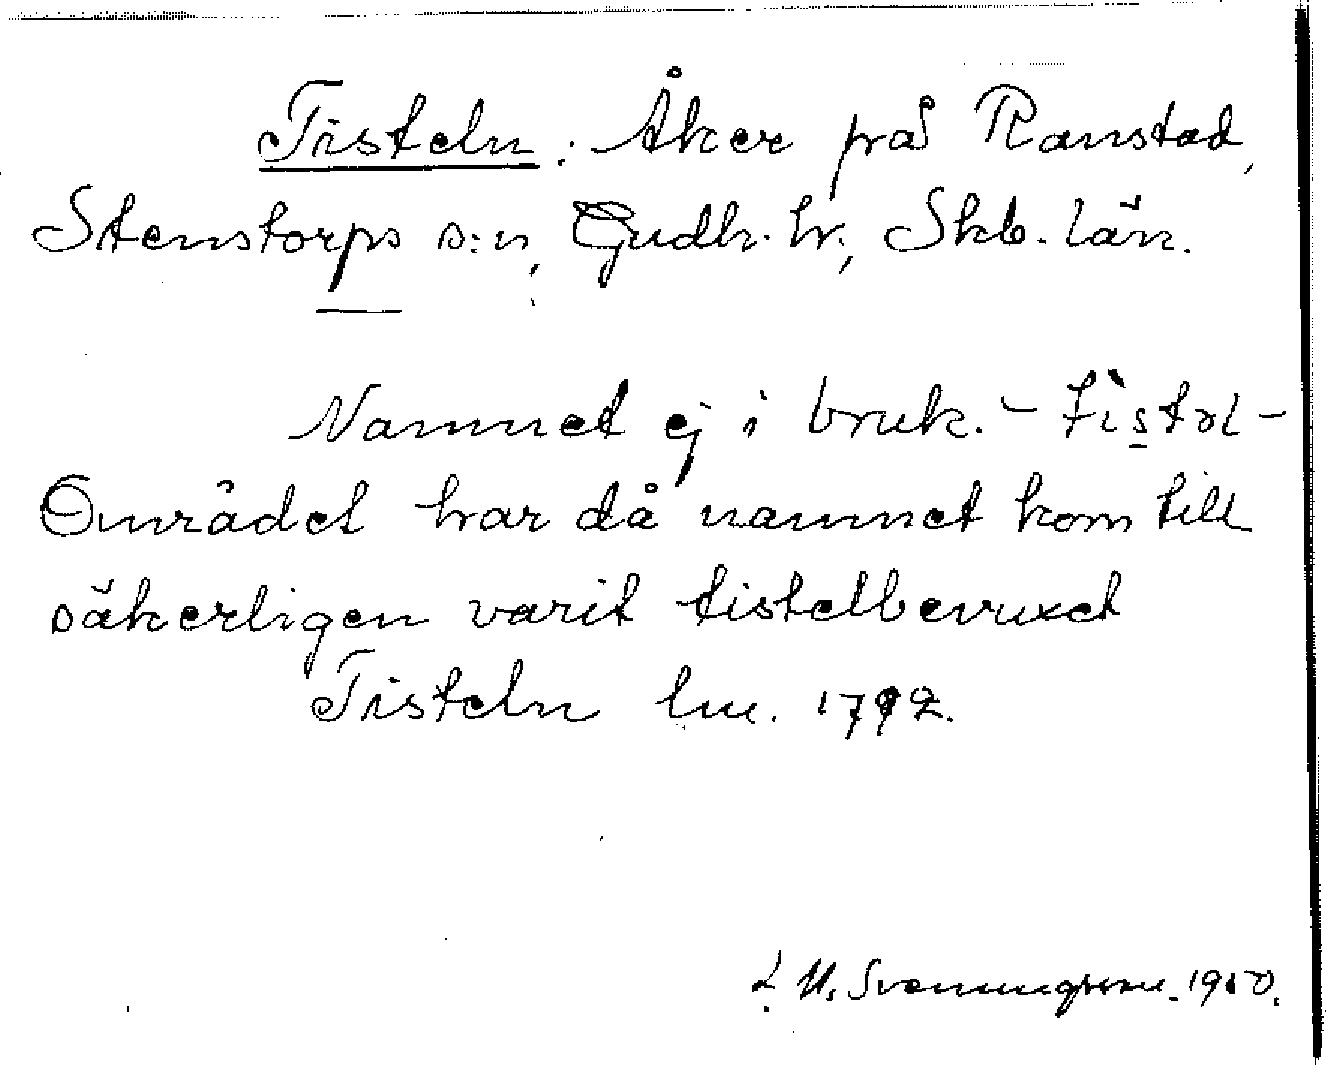 Tisteln: Åker på Ranstad,
Stenstorps s:n, Gudh. hr, Skb. län.
Namnet ej i bruk. - 
Området har då namnet kom till
säkerligen varit tistelbevuxet
Tisteln lm. 1792.
L. M. Svenungsson. 1950.